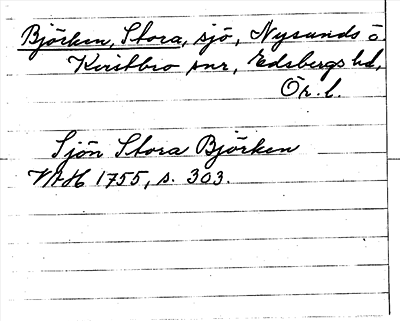 Björken, Stora, sjö, Nysunds ö.
snr, Edsbergs hd,
Ör. l.
Sjön Stora Björken
1755, s. 303.